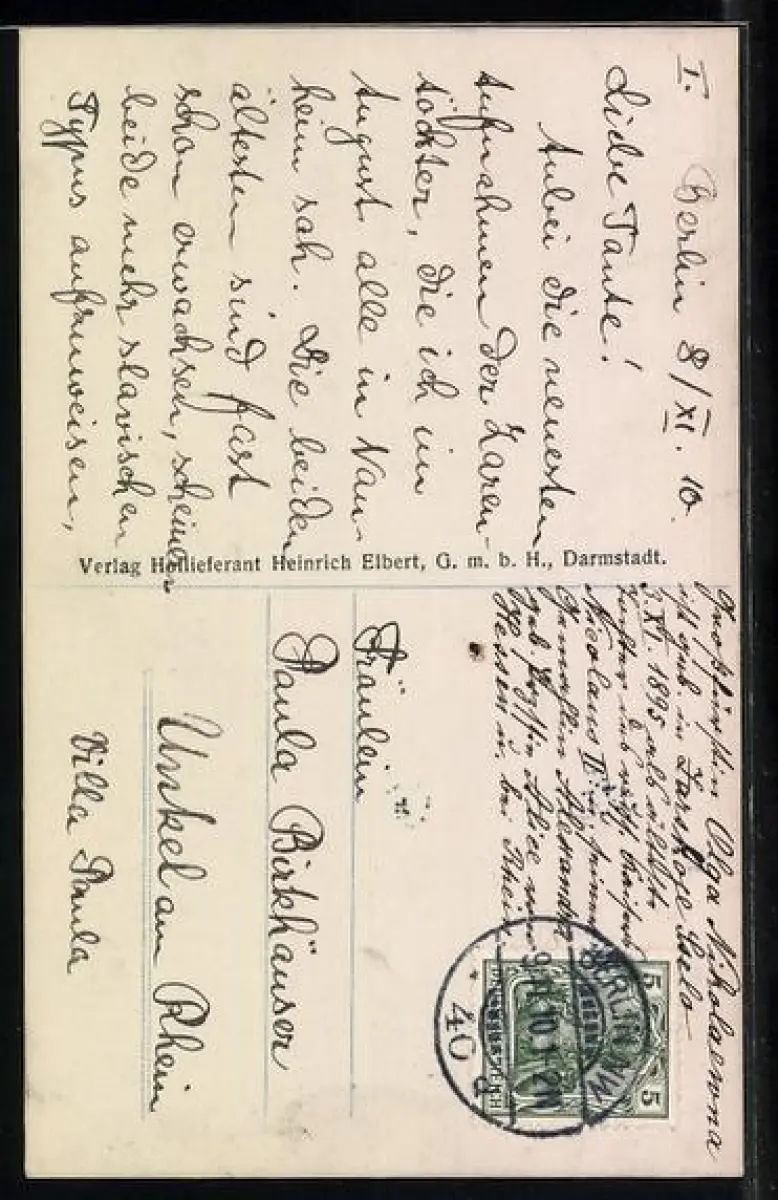 I. Berlin 8/XI. 10.
Liebe Tante!
Anbei die neuesten
Aufnahmen der Zaren-
töchter, die ich im
August alle in Nau-
heim sah. Die beiden
ältesten sind fast
schon erwachsen, scheinen
beide mehr slavischen
Typus aufzuweisen,
Verlag Hoflieferant Heinrich Elbert, G. m. b. H., Darmstadt.
Großfürstin Olga Nikolaewna
ist geb. in Zarskoje Selo
3. XI. 1895 als älteste
Tochter des russ. Kaisers
Nicolaus II. u. seiner
Gemahlin Alexandra
geb. Przssin Alice von
Hessen u. bei Rhein
5 5
DEUTSCHES REICH
BERLIN NW
9.11.10.1-2N
40 d
Fräulein
Paula Birkhäuser
Unkel am Rhein
Villa Paula